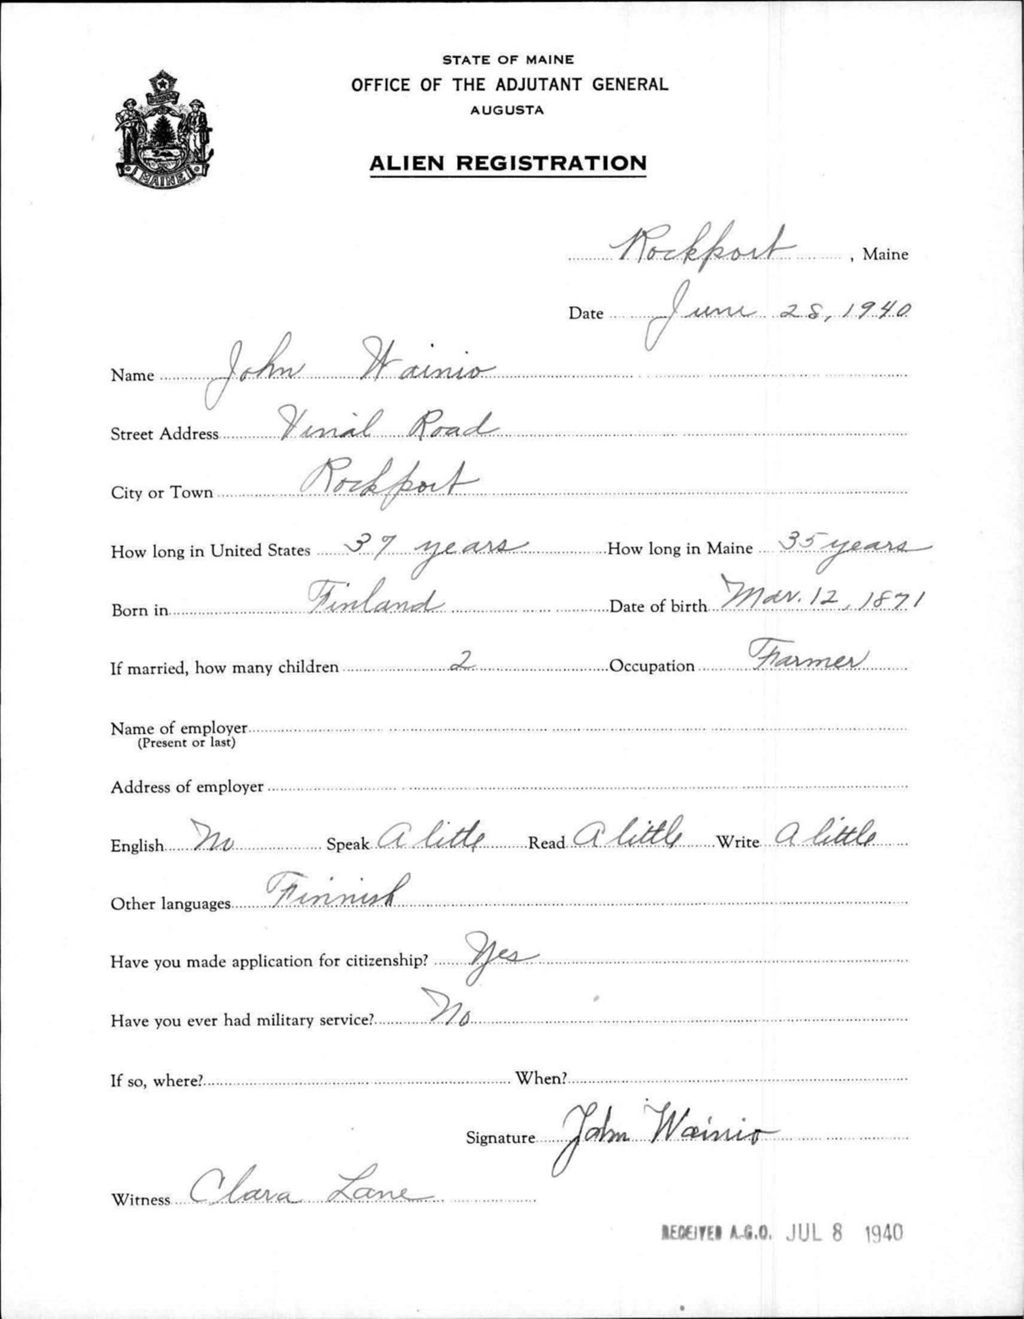 STATE OF MAINE
OFFICE OF THE ADJUTANT GENERAL
AUGUSTA
ALIEN REGISTRATION
MAINE
Rockport, Maine
Date June 28, 1940
Name John Wainio
Street Address Vinal Road
City or Town Rockport
How long in United States 37 years How long in Maine 35 years
Born in Finland Date of birth Mar. 12, 1871
If married, how many children 2 Occupation Farmer
Name of employer
(Present or last)
Address of employer
English No Speak A little Read A little Write A little
Other languages Finnish
Have you made application for citizenship? Yes
Have you ever had military service? No
If so, where? When?
Signature John Wainio
Witness Clara Lane
RECEIVED A.G.O. JUL 8 1940